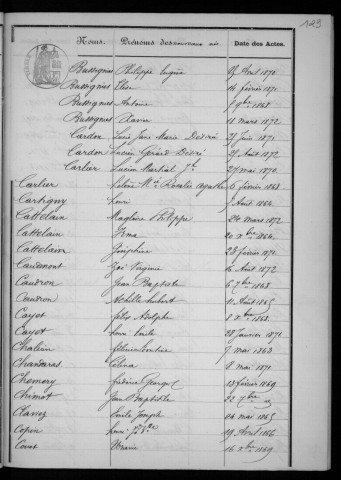 Noms. Prénoms des nouveaux nés. Date des Actes.
Bussignies Philippe Eugène Avril 1870
Bussignies Elise 16 février 1871
Bussignies Antoine 9bre 1868
Bussignies Xavier 18 mars 1872
Cardon Marie Désirée Juin 1871
Cardon Lucien Gérard Désiré Août 1872
Carlier Lucien Martial Jh 27 mai 1870
Carlier 6 février 1868
Cartigny henri Août 1864
Cattelain Magloire Philippe 20 mars 1872
Cattelain Irma 20 xbre 1864
Cattelain Joséphine 28 février 1870
Caudmont Zoé Virginie 16 Août 1872
Caudron Jean Baptiste 6 7bre 1868
Caudron Achille hubert 11 Août 1865
Cayet félix Adolphe 8 xbre 1868
Cayet henri Emile 28 Janvier 1870
Chatelain 7 mai 1863
Chanvaras Célina 8 mai 1870
Chemery frédéric George 18 février 1869
Chimot Jean Baptiste 22 7bre
Clavier Emile Joseph 06 mai 1865
Copin henri Jh 19 Avril 1866
Cornet Uranie 16 xbre 1869